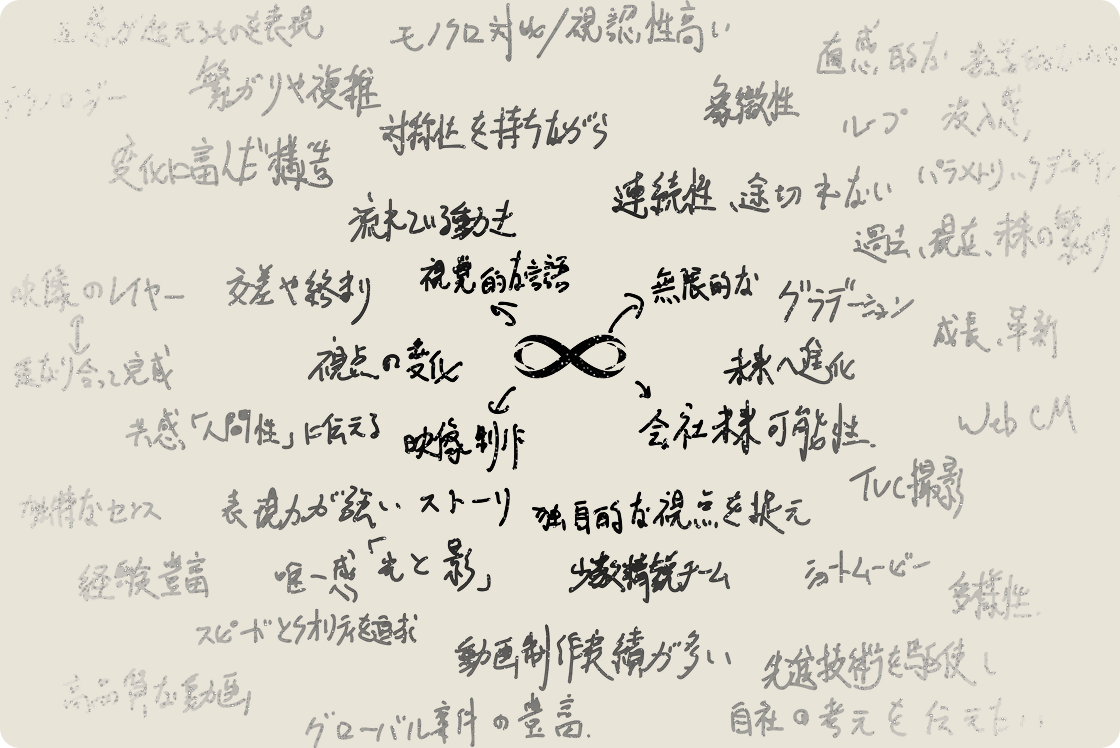 五感が超えるものを表現
モノクロ対比/視認性高い
直感的な
テクノロジー
繋がりや複雑
象徴性
対称性を持ちながら
ループ
没入感
変化に富んだ構造
連続性、途切れない
パラメトリックデザイン
流れている動き
過去、現在、未来の繋がり
映像のレイヤー
交差や終まり
視覚的な言語
無限的な
グラデーション
成長、革新
重なり合って完成
視点の変化
未来へ進化
共感、「人間性」に伝える
映像制作
会社未来可能性.
Web CM
TVC撮影
独特なセンス
表現力が強い ストーリ
独自的な視点を捉え
経験豊富
唯一感「光と影」
少数精鋭チーム
ショートムービー
多様性.
スピードとクオリティを追求
動画制作実績が多い
先進技術を駆使し
高品質な動画
グローバル案件の豊富.
自社の考えを伝えたい